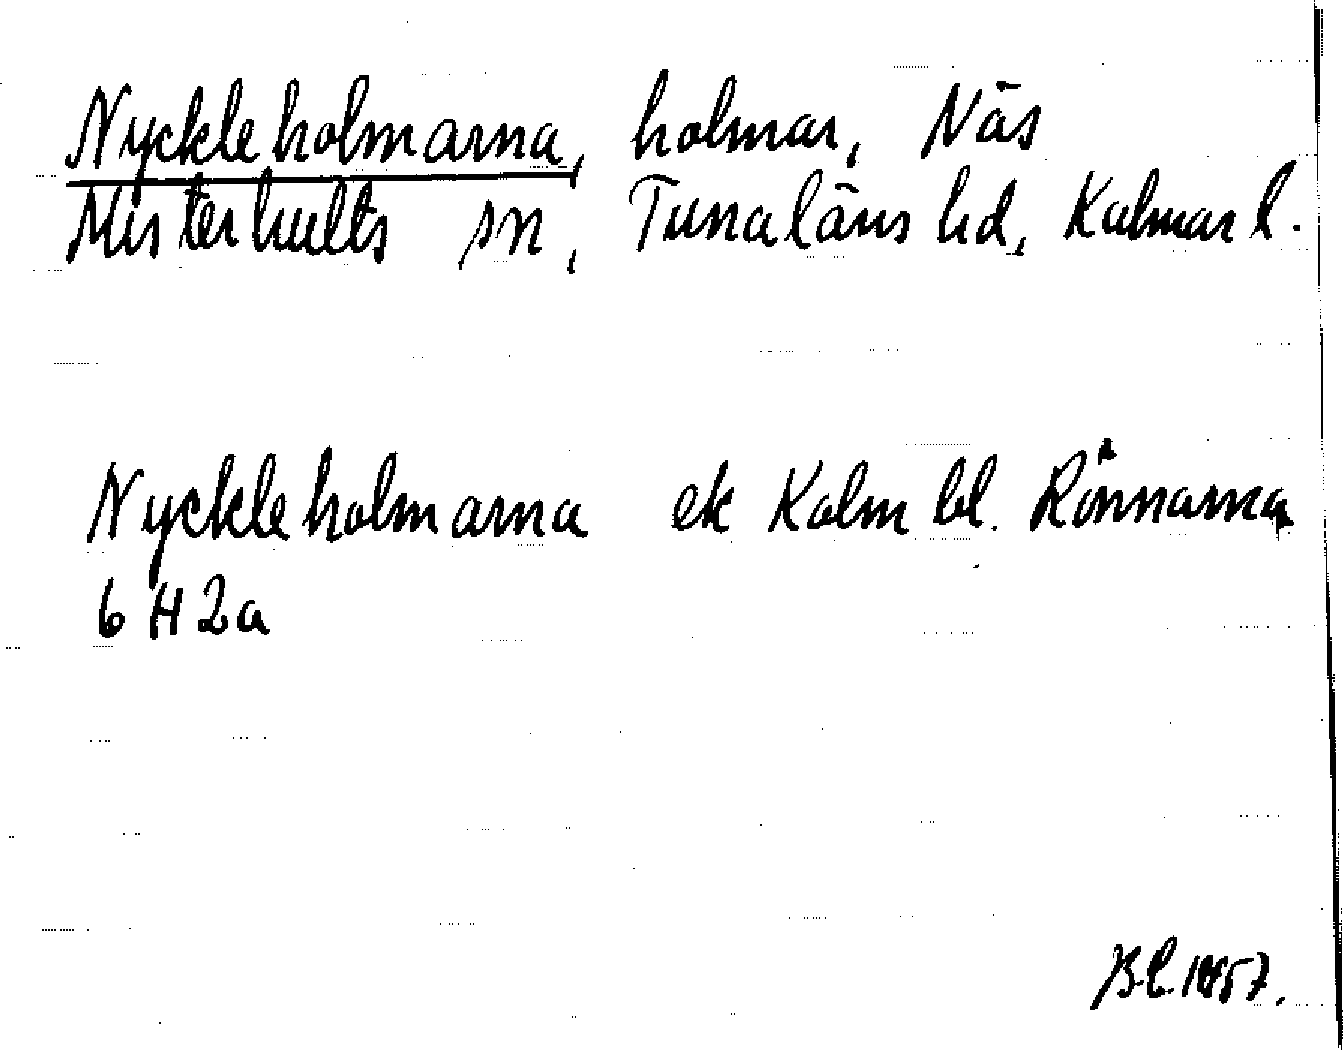 Nyckleholmarna, holmar, Näs
Misterhults sn, Tunaläns hd, Kalmar l.
Nyckleholmarna ek Kalm bl. Rönnarna
6 H 2a